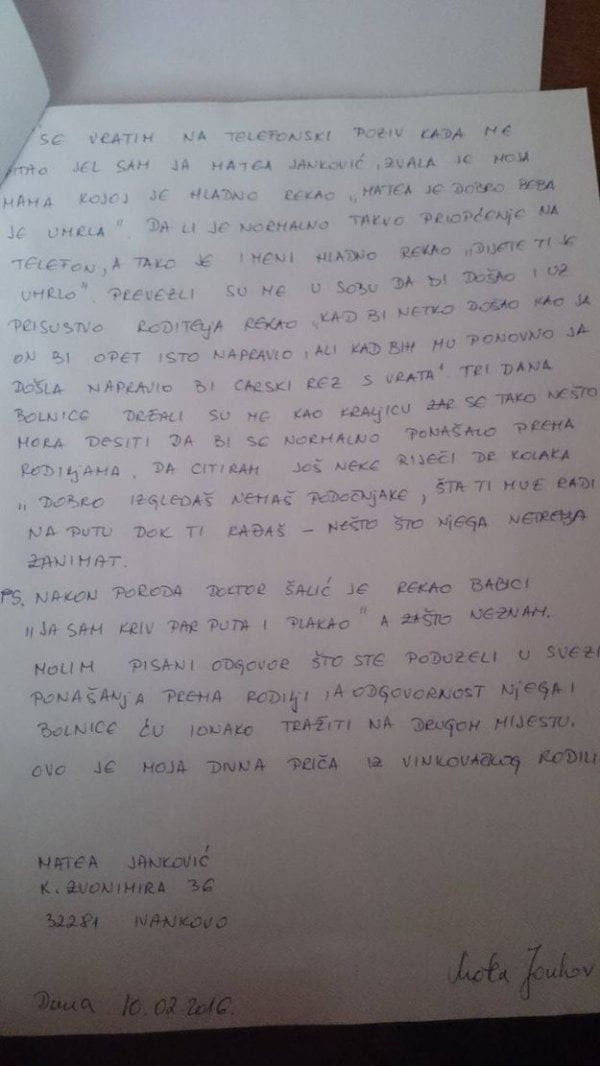 SE VRATIM NA TELEFONSKI POZIV KADA ME
PITAO JEL SAM JA MATEA JANKOVIĆ, ZVALA JE MOJA
MAMA KOJOJ JE HLADNO REKAO „MATEA JE DOBRO BEBA
JE UMRLA". DA LI JE NORMALNO TAKVO PRIOPĆENJE NA
TELEFON, A TAKO JE I MENI HLADNO REKAO „DIJETE TI JE
UMRLO". PREVEZLI SU ME U SOBU DA BI DOŠAO I UZ
PRISUSTVO RODITELJA REKAO „KAD BI NETKO DOŠAO KAO JA
ON BI OPET ISTO NAPRAVIO, ALI KAD BIH MU PONOVNO JA
DOŠLA NAPRAVIO BI CARSKI REZ S VRATA". TRI DANA
BOLNICE DRŽALI SU ME KAO KRALJICU ZAR SE TAKO NEŠTO
MORA DESITI DA BI SE NORMALNO PONAŠALO PREMA
RODILJAMA. DA CITIRAM JOŠ NEKE RIJEČI DR KOLAKA
„DOBRO IZGLEDAŠ NEMAŠ PODOČNJAKE, ŠTA TI MUŽ RADI
NA PUTU DOK TI RAĐAŠ – NEŠTO ŠTO NJEGA NETREBA
ZANIMAT.
PS. NAKON PORODA DOKTOR ŠALIĆ JE REKAO BABICI
„JA SAM KRIV PAR PUTA I PLAKAO" A ZAŠTO NEZNAM.
MOLIM PISANI ODGOVOR ŠTO STE PODUZELI U SVEZI
PONAŠANJA PREMA RODILJI, A ODGOVORNOST NJEGA I
BOLNICE ĆU IONAKO TRAŽITI NA DRUGOM MIJESTU.
OVO JE MOJA DIVNA PRIČA IZ VINKOVAČKOG RODILI
MATEA JANKOVIĆ
K. ZVONIMIRA 36
32281 IVANKOVO
Dana 10.02.2016.